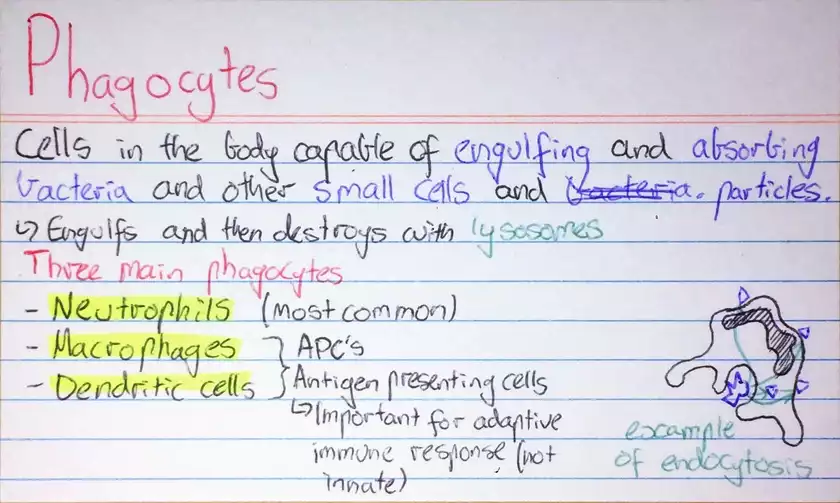 Phagocytes
Cells in the body capable of engulfing and absorbing
bacteria and other small cells and bacteria. particles.
↳ Engulfs and then destroys with lysosomes
Three main phagocytes
- Neutrophils (most common)
- Macrophages } APC's
- Dendritic cells } Antigen presenting cells
↳ Important for adaptive
immune response (not
innate)
example
of endocytosis